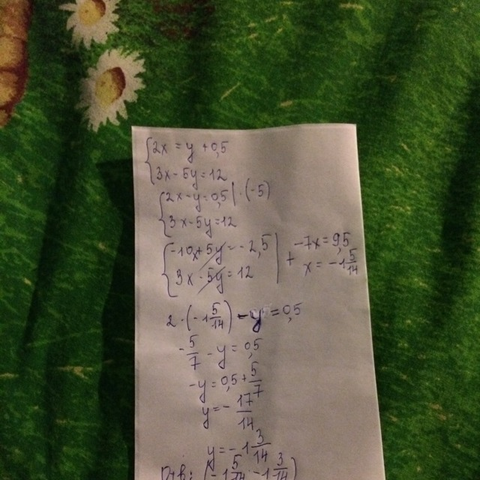 {2x = y + 0,5
{3x - 5y = 12
{2x - y = 0,5 | · (-5)
{3x - 5y = 12
{-10x + 5y = -2,5 | + -7x = 9,5
{3x - 5y = 12 | x = -1 5/14
2 · (-1 5/14) - y = 0,5
-5/7 - y = 0,5
-y = 0,5 + 5/7
y = - 17/14
y = -1 3/14
Отв: (-1 5/14 -1 3/14)